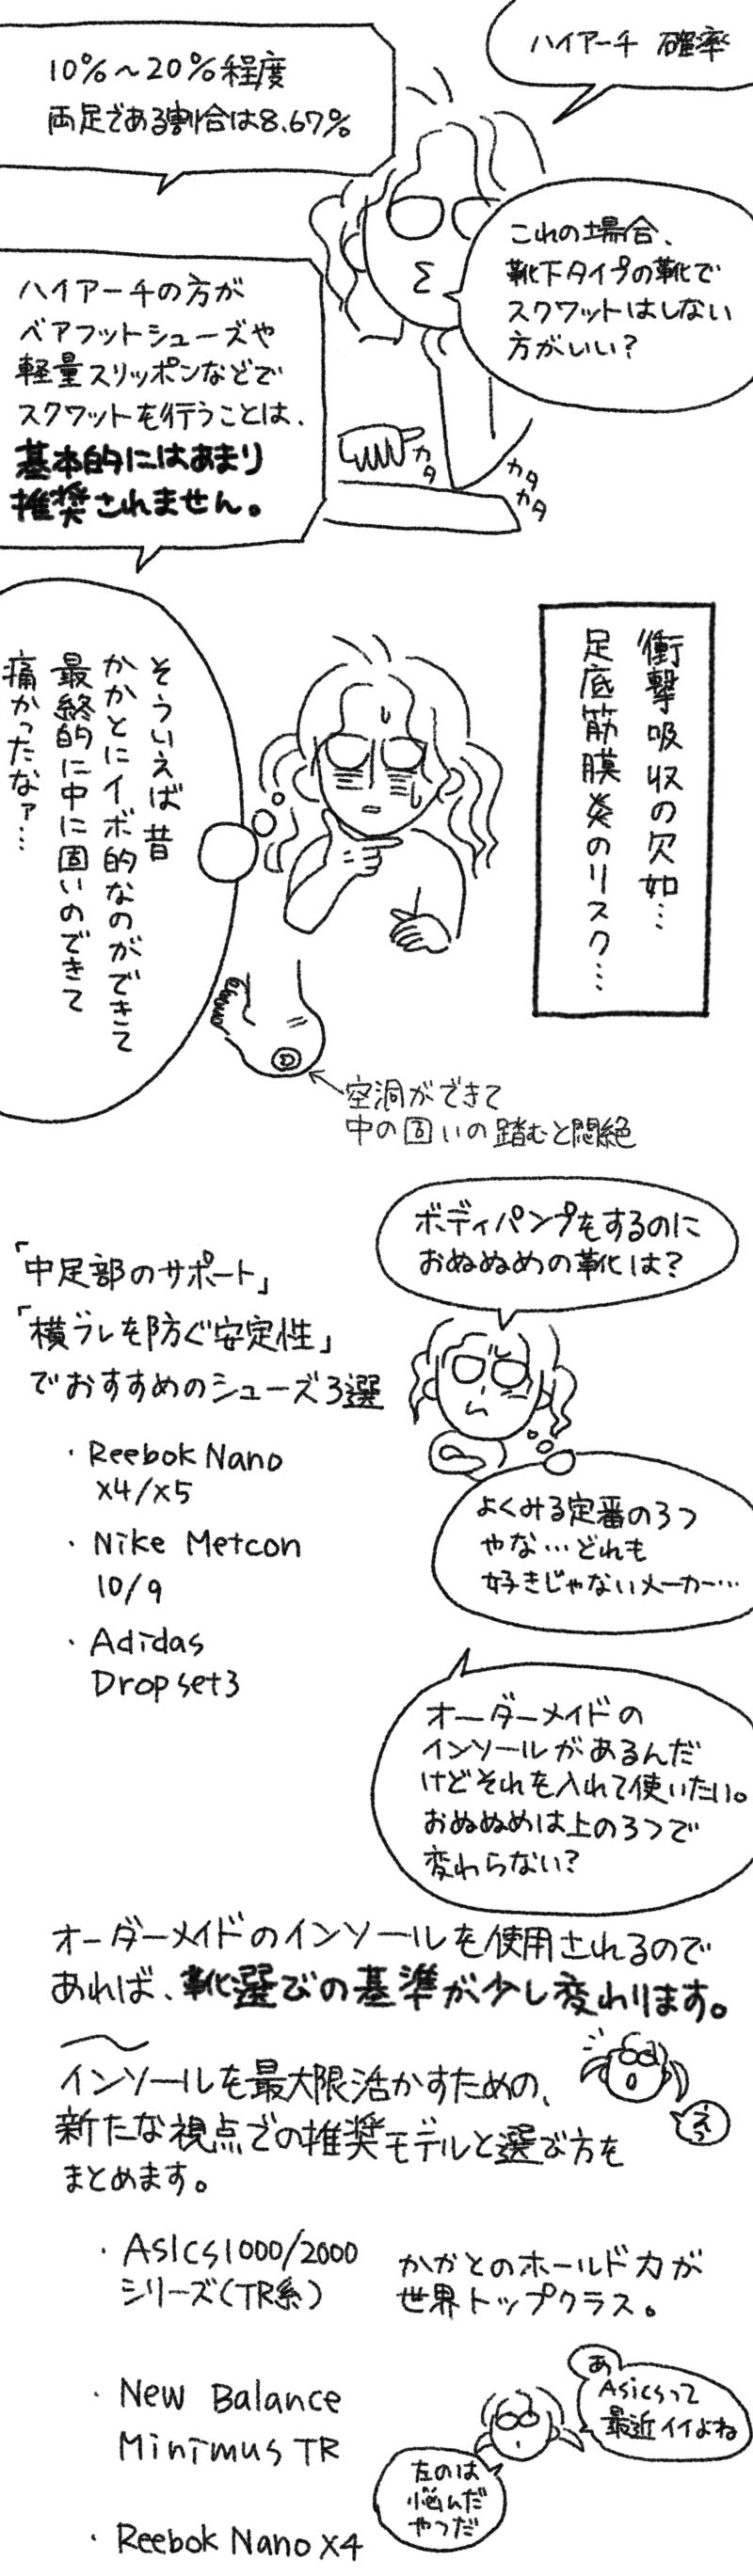 ハイアーチ 確率
10%〜20%程度
両足である割合は8.67%
これの場合、
靴下タイプの靴で
スクワットはしない
方がいい?
ハイアーチの方が
ベアフットシューズや
軽量スリッポンなどで
スクワットを行うことは、
基本的にはあまり
推奨されません。
カタ
カタ
カタ
衝撃吸収の欠如…
足底筋膜炎のリスク…
そういえば昔
かかとにイボ的なのができて
最終的に中に固いのできて
痛かったなァ…
空洞ができて
中の固いの踏むと悶絶
ボディパンプをするのに
おぬぬめの靴は?
「中足部のサポート」
「横ブレを防ぐ安定性」
でおすすめのシューズ3選
・Reebok Nano
X4/X5
・Nike Metcon
10/9
・Adidas
Dropset3
よくみる定番の3つ
やな…どれも
好きじゃないメーカー…
オーダーメイドの
インソールがあるんだ
けどそれを入れて使いたい。
おぬぬめは上の3つで
変わらない?
オーダーメイドのインソールを使用されるので
あれば、靴選びの基準が少し変わります。
インソールを最大限活かすための、
新たな視点での推奨モデルと選び方を
まとめます。
え
・Asics1000/2000
シリーズ(TR系)
かかとのホールド力が
世界トップクラス。
・New Balance
Minimus TR
あ
Asicsって
最近イイよね
左のは
悩んだ
やつだ
・Reebok Nano X4